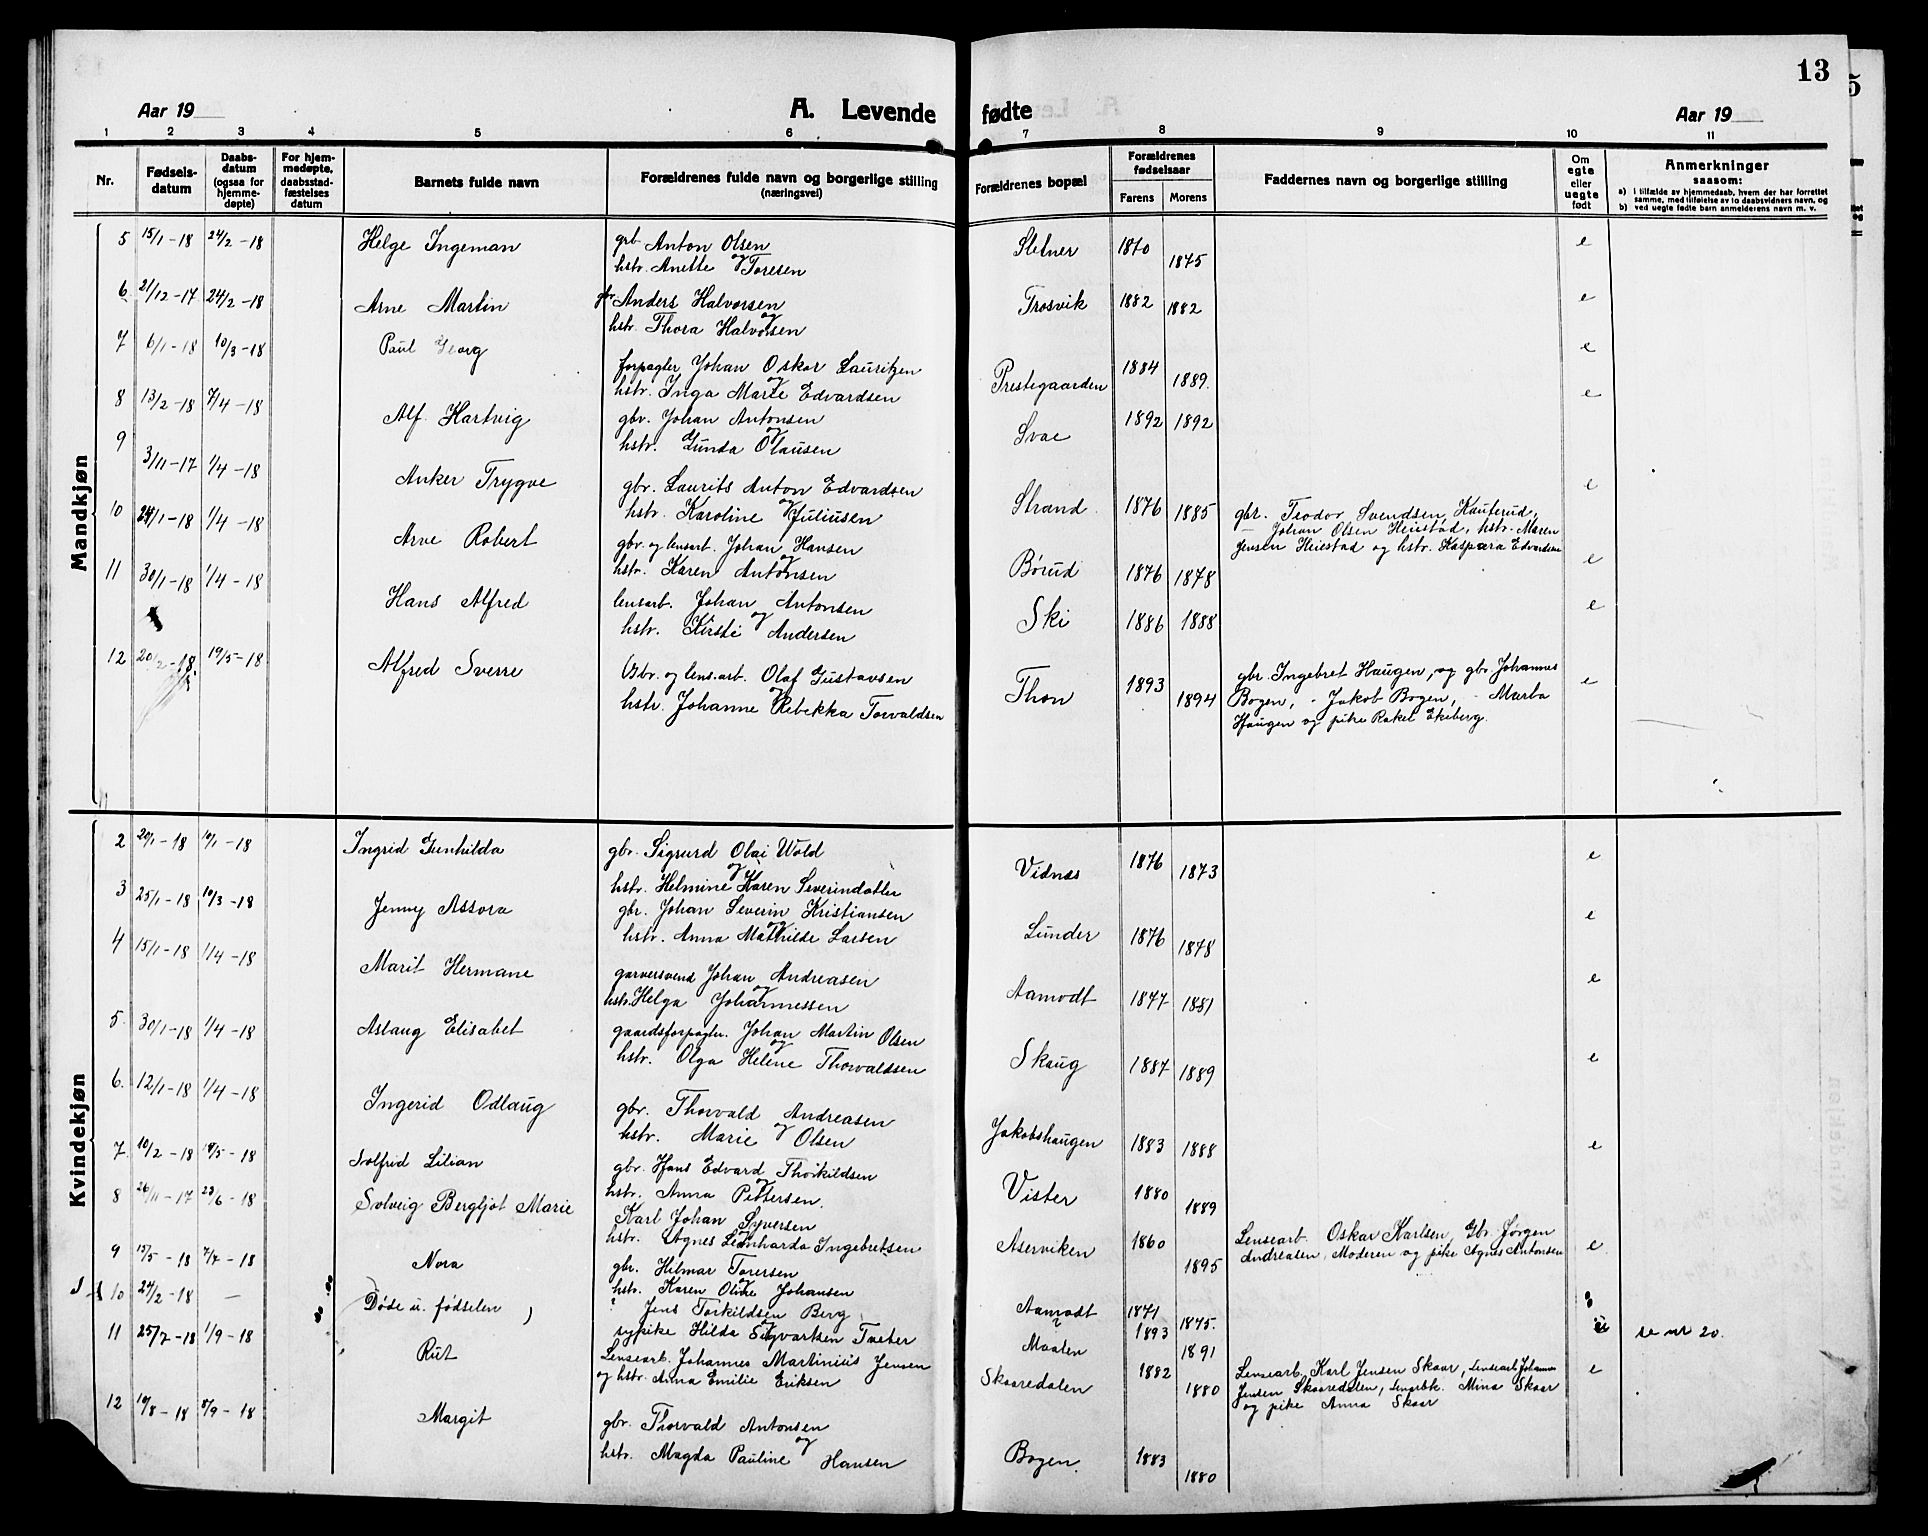 13
Aar 19
A. Levende fødte
Aar 19
1 2 3 4 5 6 7 8 9 10 11
Nr. Fødsels-datum Daabs-datum (ogsaa for hjemme-døpte) For hjem-medøpte, daabsstad-fæstelses datum Barnets fulde navn Forældrenes fulde navn og borgerlige stilling (næringsvei) Forældrenes bopæl Forældrenes fødselsaar Farens Morens Faddernes navn og borgerlige stilling Om egte eller uegte født Anmerkninger saasom:
a) i tilfælde av hjemmedaab, hvem der har forrettet samme, med tilføielse av to daabsvidners navn, og
b) ved uegte fødte barn anmelderens navn m. v.
Mandkjøn
5 15/1-18 24/2-18 Helge Ingeman grb. Anton Olsen Sletner 1870 1875 e
og hstr. Anette Toresen
6. 21/12-17 24/2-18 Arne Martin gbr Anders Halvorsen Trosvik 1882 1882 e
og hstr. Thora Halvorsen
7 6/1-18 10/3-18 Paul Georg forpagter Johan Oskar Lauritzen Prestegaarden 1884 1889. e
og hstr. Inga Marie Edvardsen
8 13/2-18 7/4-18 Alf Hartvig gbr. Johan Antonsen Svae 1892 1892 e
og hstr. Gunda Olausen
9 3/11-17 1/4-18 Anker Trygve gbr. Laurits Anton Edvardsen Strand 1876 1885 e
og hstr. Karoline Juliusen
gbr. Teodor Svendsen Kauterud,
Johan Olsen Heiestad, hstr. Maren
Jensen Heiestad og hstr. Kaspara Edvardsen
10 24/1-18 1/4-18 Arve Robert gbr. og lensarb. Johan Hansen Børud 1876 1878 e
og hstr. Karen Antonsen
11 30/1-18 1/4-18 Hans Alfred lensarb. Johan Antonsen Ski 1886 1888 e
og hstr. Kirsti Andersen
12 20/2-18 19/5-18 Alfred Sverre Gbr. og lens.arb. Olaf Gustavsen Thon 1893 1894 e
og hstr. Johanne Rebekka Torvaldsen
gbr. Ingebret Haugen, og gbr Johannes
Bogen, - Jakob Bogen, - Marta
Haugen og pike Rakel Ekeberg.
Kvindekjøn
2 20/1-18 10/1-18 Ingrid Gunhilda gbr. Sigurd Olai Wold Vidnes 1876 1873 e
og hstr. Helmine Karen Severindatter
3 25/1-18 10/3-18 Jenny Assora gbr. Johan Severin Kristiansen Lunder 1876 1878 e
og hstr. Anna Mathilde Larsen
4 15/1-18 1/4-18 Marit Hermane garversvend Johan Andreasen Aamodt 1877 1881 e
og hstr. Helga Johannessen
5. 30/1-18 1/4-18 Aslaug Elisabet gaardsforpagter. Johan Martin Olsen Skaug 1887 1889 e
og hstr. Olga Helene Thorvaldsen
6. 12/1-18 1/4-18 Ingerid Odlaug gbr. Thorvald Andreasen Jakobshaugen 1883 1888 e
og hstr. Marie Olsen
7. 10/2-18 19/5-18 Solfrid Lilian gbr. Hans Edvard Thorkildsen Vister 1880 1889
og hstr. Anna Pettersen.
8 26/11-17 23/6-18 Solveig Bergljot Marie Karl Johan Syversen Aserviken 1860 1895 e
og hstr. Agnes Leonharda Ingebretsen
Lensearb. Oskar Karlsen, Gbr. Jørgen
Andreasen, Moderen og pike Agnes Antonsen
9 15/5-18 7/7-18 Nora gbr. Hilmar Toresen Aamodt 1871 1875.
og hstr. Karen Oline Johansen
10 24/2-18 — Døde u. fødselen ? Jens Torkildsen Berg ? 1893 se nr 20.
og sypike Hilda Sigvartsen Tveter Maalen 1891
11 25/7-18 1/9-18 Rut Lensearb. Johannes Martinius Jensen Skaaredalen 1882 1880 e
og hstr. Anna Emilie Eriksen
Lensearb. Karl Jensen Skaar, Lensearb Johannes
Jensen Skaaredalen, Mina Skaar
og pike Anna Skaar
12 10/8-18 8/9-18 Margit gbr. Thorvald Antonsen Bogen. 1883 1880
og hstr. Magda Pauline Hansen